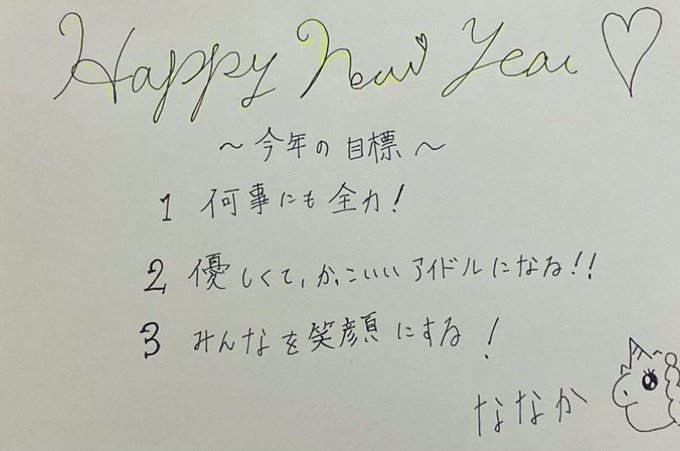 Happy New Year ♡
～今年の目標～
1 何事にも全力!
2 優しくて、かっこいいアイドルになる!!
3 みんなを笑顔にする!
ななか